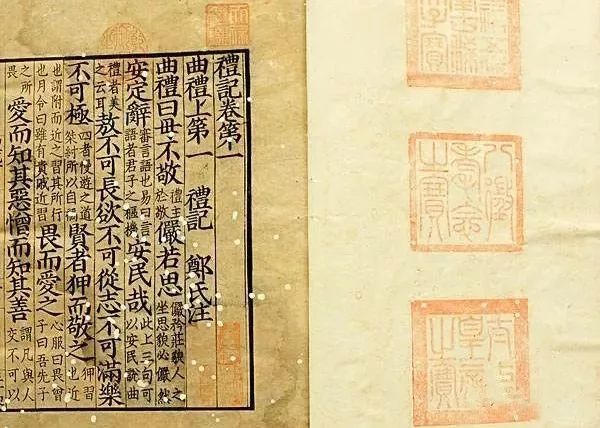 八徵耄念之寶
太上皇帝之寶
禮記卷第一
曲禮上第一 禮記 鄭氏注
曲禮曰毋不敬禮主於敬儼若思儼矜莊貌人之坐思貌必儼然
安定辭審言語也易曰言語者君子之樞機安民哉此上三句可以安民說曲
禮者美之云耳敖不可長欲不可從志不可滿樂
不可極四者慢遊之道桀紂所以自禍賢者狎而敬之狎習也近
也謂附而近之習其所行也月令曰雖有貴戚近習畏而愛之心服曰畏曾子曰吾先子
之所畏愛而知其惡憎而知其善謂凡與人交不可以